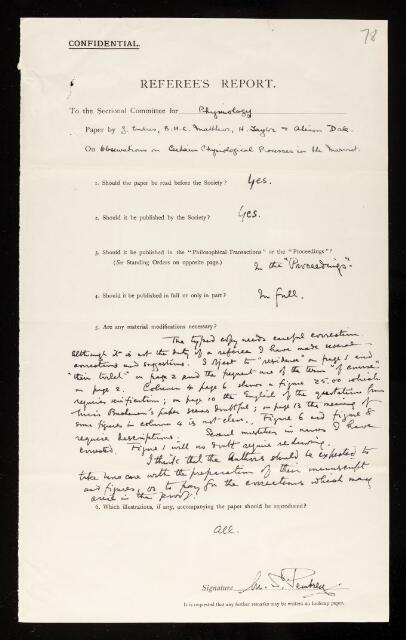 78
CONFIDENTIAL.
REFEREE'S REPORT.
To the Sectional Committee for Physiology
Paper by B.H.C. Matthews, H. Taylor & Alison Dale
On Observations on Certain Physiological Processes in the Marmot.
1. Should the paper be read before the Society? Yes.
2. Should it be published by the Society? Yes.
3. Should it be published in the "Philosophical Transactions" or the "Proceedings"?
(See Standing Orders on opposite page.) In the "Proceedings".
4. Should it be published in full or only in part? In full.
5. Are any material modifications necessary?
The typed copy needs careful correction
although it is not the duty of a referee I have made several
corrections and suggestions. I object to "residence" on page 1 and
"their toilet" on page 2 and the frequent use of the term "of course"
on page 2. Column 4 page 6 shows a figure 25.00 which
requires verification; on page 10 the English of the quotation from
Buchanan's paper seems doubtful; on page 13 the meaning of
some figures in column 4 is not clear. Figure 6 and figure 8
require descriptions. Several mistakes in names I have
corrected. Figure 1 will no doubt require redrawing.
I think that the Authors should be expected to
take more care with the preparation of their manuscript
and figures, or to pay for the corrections which may
arise in the proof.
6. Which illustrations, if any, accompanying the paper should be reproduced?
All.
Signature M. S. Pembrey.
It is requested that any further remarks may be written on foolscap paper.